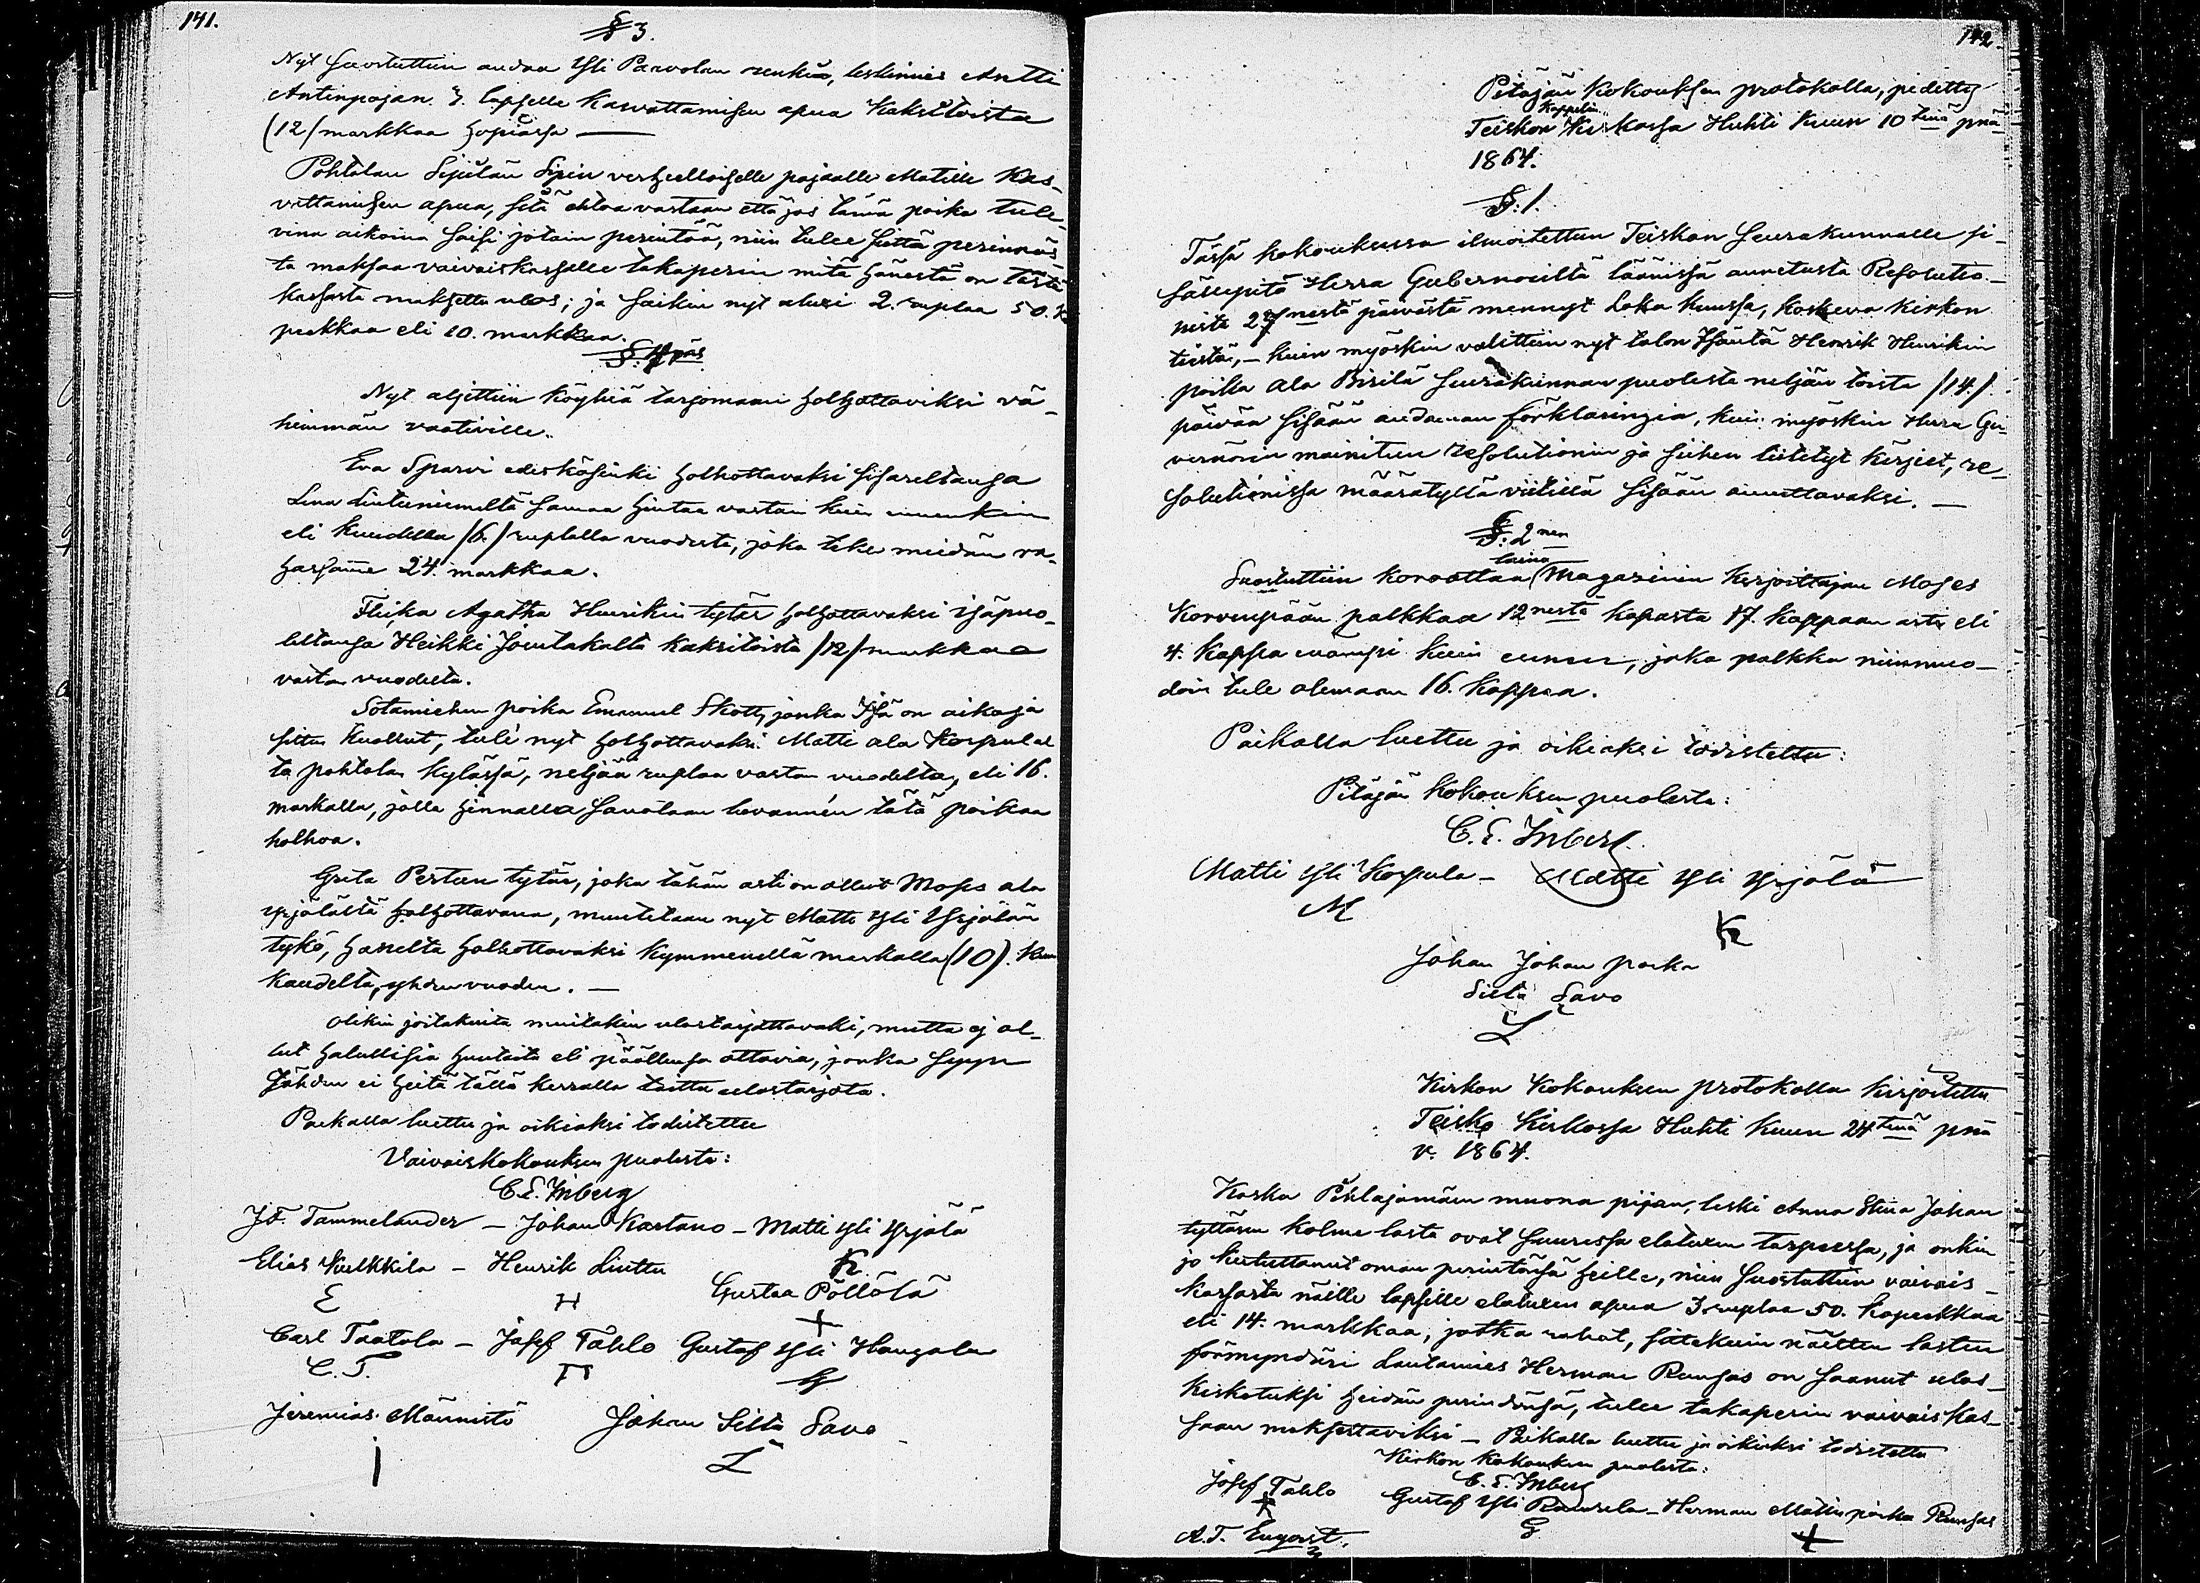 141.
§ 3.
Nyt suostuttiin andaa Yli Parvolan renkiä, leskimies Antti
Antinpojan 3. lapselle kasvattamisen apua kaksitoista
(12) markkaa hopiassa —
Pohtolan Sipilän Sipin verhelloiselle pojaalle Matille kas-
vattamisen apua, sitä ehtoa vastaan että jos tämä poika tule-
vina aikoina saisi jotain perintöä, niin tulee siittä perinnös-
tä maksaa vaivaiskassalle takaperin mitä hänestä on tästä
kassasta maksettu ulos; ja saikin nyt aluxi 2. ruplaa 50. ko
pekkaa eli 10. markkaa.
§. 4 päs
Nyt aljettiin köyhiä tarjomaan holhottaviksi vä-
himmän vaativille.
Eva Sparvi edeskäsinki holhottavaksi sisareltansa
Lina Liuteniemeltä samaa hintaa vastaan kuin ennenkin
eli kuudella /6./ ruplalla vuodesta, joka teke meidän ra-
hassamme 24. markkaa.
Flika Agatha Henrikin tytär holhottavaksi isäpuo-
leltansa Heikki Joentakalta kaksitoista /12/ markkaa
vasta vuodelta.
Sotamiehen poika Emanuel Skott, jonka Isä on aikoja
sitten kuollut, tuli nyt holhottavaksi Matti ala Korpulal
ta pohtolan kylässä, neljää ruplaa vastan vuodelta, eli 16.
markalla, jolla hinnalla sanotaan luvannen tätä poikaa
holhoa.
Greta Pertun tytär, joka tähän asti on ollut Moses ala
yrjölältä holhottavana, muutetaan nyt Matti Yli Yrjölän
tykö, häneltä holhottavaksi kymmenellä markalla (10). kuu
kaudelta, yhden vuoden. —
Olikin joitakuita muitakin ulostarjottavaki, mutta ej ol-
lut halullisia huutoita eli päällensä ottavia, jonka syyn
tähden ei heitä tällä kerralla taittu ulostarjota.
Paikalla luettu ja oikiaksi todistettu
Vaivaiskokouksen puolesta:
C. E. Inberg
J. F. Tammelander — Johan Kartano — Matti Yli Yrjölä
Elias Kulkkila — Henrik Liuttu K
E H Gustaa Pöllölä
Carl Taatola — Josef Tahlo Gustaf Yli Hangala
C. T. G
Jeremias Männistö Johan Silta Savo
I L
142.
Pitäjän kokouksen protokolla, pidetty
Kappelin
Teiskon Kirkossa Huhti kuun 10 tenä pnä
1864.
§. 1.
Tässä kokouksessa ilmoitettun Teiskon seurakunnalle si-
sällepitä Herra Gubernorilta läänissä annetusta Resolutio-
nista 27 nestä päivästä mennyt Loka kuussa, koskeva kirkon
tiestä, — kuin myöskin valittiin nyt talon Isäntä Henrik Henrikin
poika Ala Pirilä seurakunnan puolesta neljän toista /14/.
päivän sisään andaman förklaringia, kuin myöskin Herra Gu-
vernörin mainitun resolutionin ja siihen liitetyt kirjeet, re-
solutionissa määrätyllä viitillä sisään annettavaksi. —
§. 2 nen
laina
Suostuttiin korottaa Magazinin kirjoittajan Moses
Korvenpään palkkaa 12 nestä kapasta 17. kappaan asti eli
4. kappa enämpi kuin ennen, joka palkka niinmuo-
doin tule olemaan 16. kappaa.
Paikalla luettu ja oikiaksi todistettu:
Pitäjän kokouksen puolesta:
C. E. Inberg.
Matti Yli Korpula — Matti Yli Yrjölä
M K
Johan Johan poika
Silta Savo
L
Kirkon Kokouksen protokolla kirjoitettu
Teisko Kirkossa Huhti kuun 24 tenä pnä
v. 1864.
Koska Pihlajamäen muona pijan, leski Anna Stina Johan
tyttären kolme lasta ovat suuressa elatuxen tarpeessa, ja onkin
jo kuluttanut oman perintönsä heille, niin suostuttiin vaivais-
kassasta näille lapsille elatuxen apua 3. ruplaa 50. kopekkaa
eli 14. markkaa, jotka rahat, sittekuin näitten lasten
förmyndäri Lautamies Herman Runsas on saanut ulos-
kiskotuksi heidän perindönsä, tulee takaperin vaivais kas-
saan maksettaviksi — Paikalla luettu ja oikiaksi todistettu
Kirkon kokouksen puolesta:
C. E. Inberg
Josef Tahlo Gustaf Yli — Herman Matin poika Runsas
G
A. T. Engqvist.